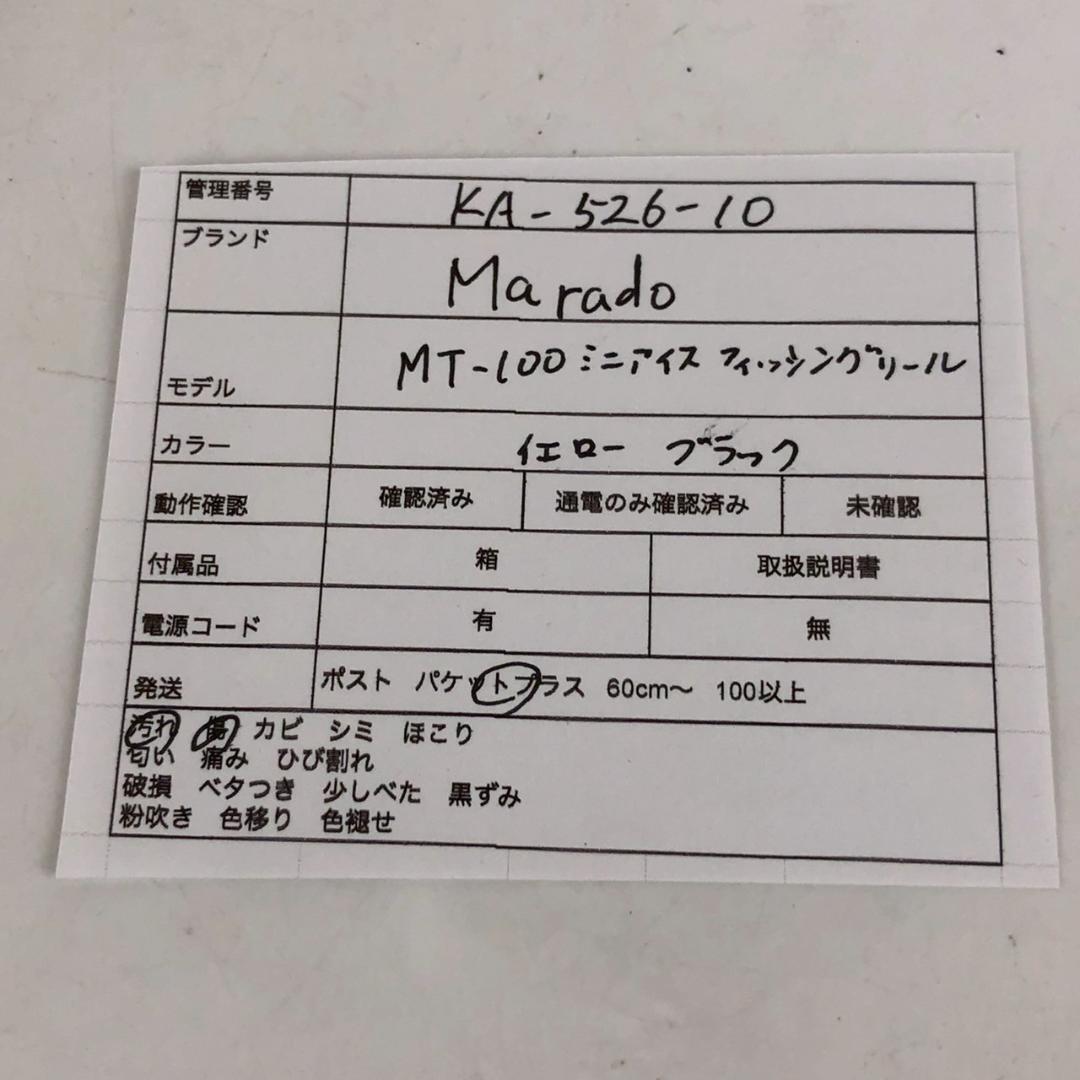 管理番号 KA-526-10
ブランド Marado
モデル MT-100 ミニアイス フィッシングリール
カラー イエロー ブラック
動作確認 確認済み 通電のみ確認済み 未確認
付属品 箱 取扱説明書
電源コード 有 無
発送 ポスト パケットプラス 60cm〜 100以上
汚れ 傷 カビ シミ ほこり
匂い 痛み ひび割れ
破損 ベタつき 少しべた 黒ずみ
粉吹き 色移り 色褪せ